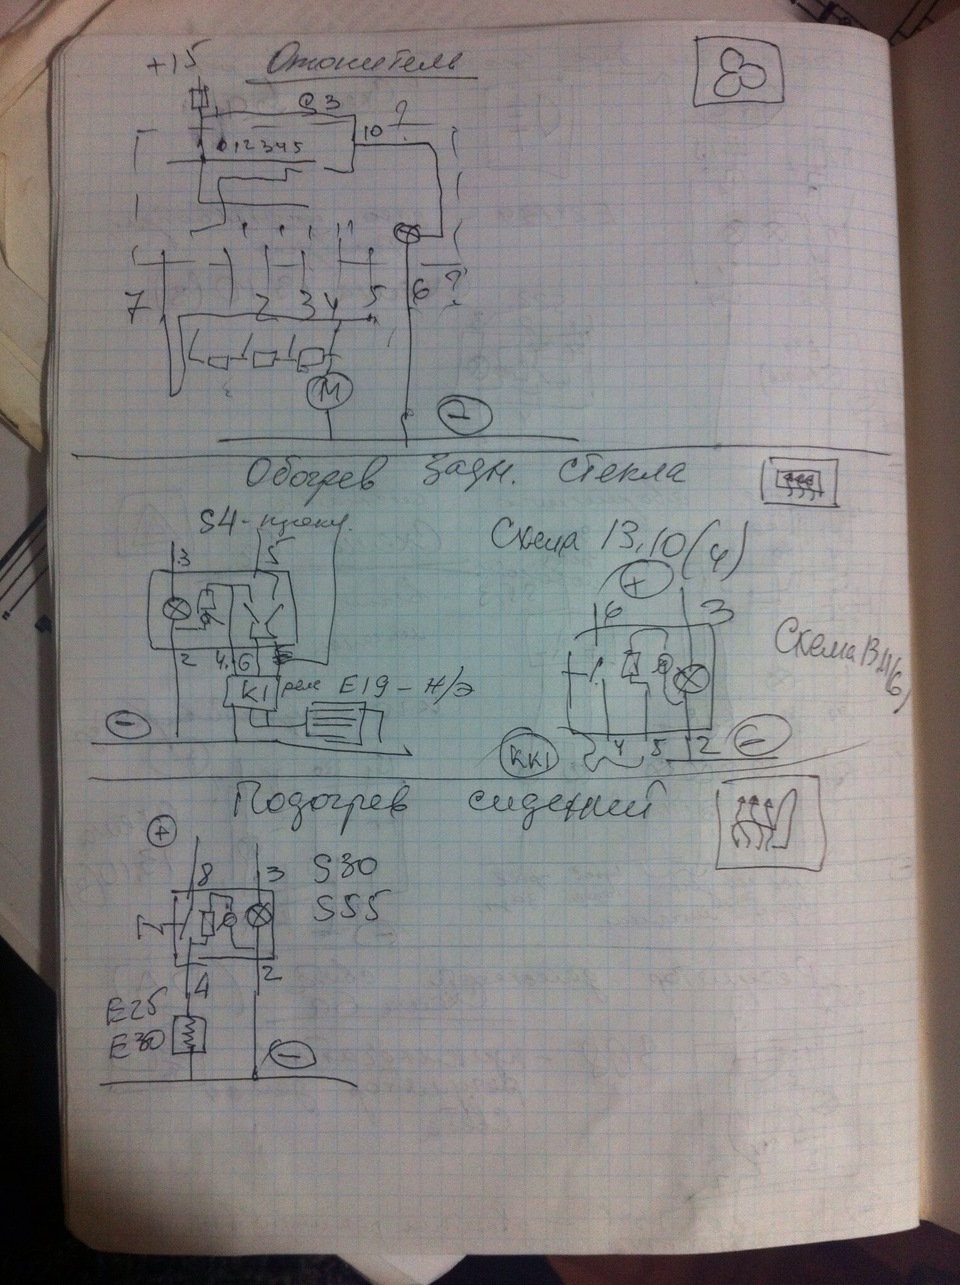 Отопитель
+15
S3
10 ?
0 1 2 3 4 5
7 2 3 4 5 6 ?
М
−
Обогрев задн. стекла
S4-
3 5
2 4 6
К1 реле E19 - н/э
−
Схема 13,10(4)
+
6 3
Схема 13.11(6)
КК1 4 5 2 −
Подогрев сидений
+
8 3 S30
S55
4 2
E25
E30
−